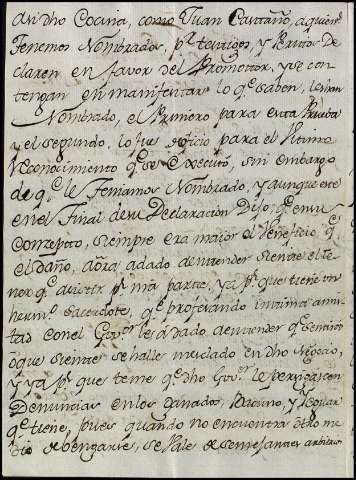 dho Cocina, como Juan Cantaño, aquien
Tenemos Nombrados, pr testigos, y
claren en favor del Promotor, y se con
tengan en manifestar lo q.e saben,
Nombrado, el Primero para esta Prueba
y el segundo, lo fue de oficio para el Vltimo
reconocimiento q.e se executó, sin embargo
de q.e le Teniamos Nombrado, y aunque este
en el Final de su Declaracion Dijo, q.e en su
Conzepto, siempre era maior el Veneficio q.e
el daño, aõra a dado de entender siente el te
nor q.e pr ma parte, ya pr que tiene un
herm.o Sacerdote, q.e profezando intima amis
tad con el Gov.or le á dado de entender q.e
ôque siente se halle mesclado en dho Negocio,
y ya pr que teme q.e dho Gov.or le persiga con
Denuncias en los ganados, Bacuno, y
q.e tiene, pues quando no encuentra otro me
dio de bengarse, se Vale de semejantes arbitrios